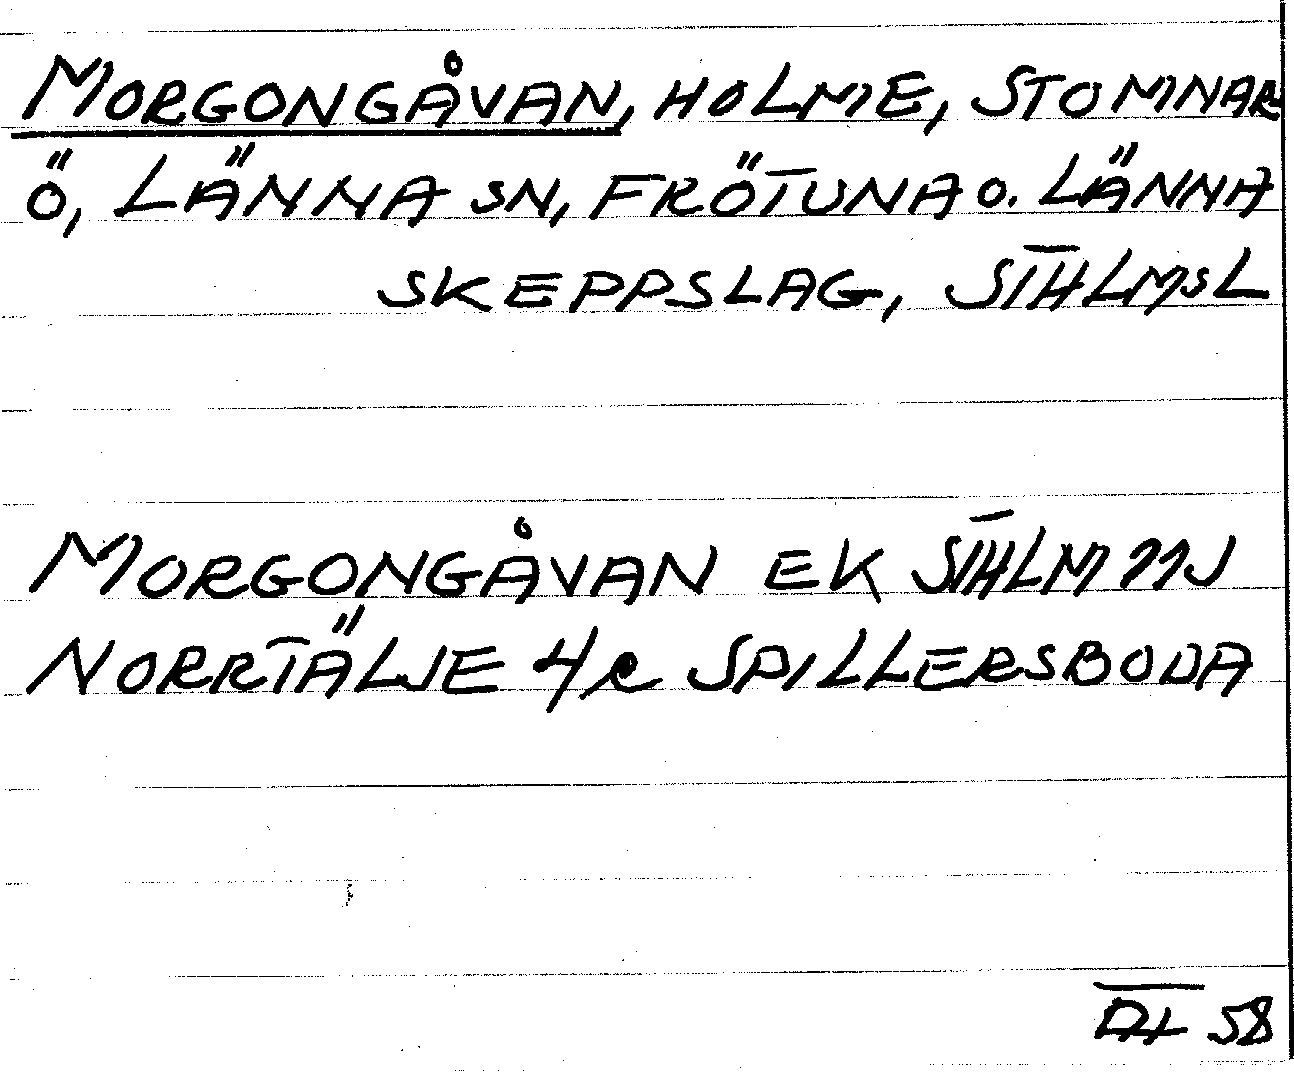 MORGONGÅVAN, HOLME, STOMNAR
Ö, LÄNNA SN, FRÖTUNA O. LÄNNA
SKEPPSLAG, STHLMSL
MORGONGÅVAN EK STHLM 11J
NORRTÄLJE 4/R SPILLERSBODA
58